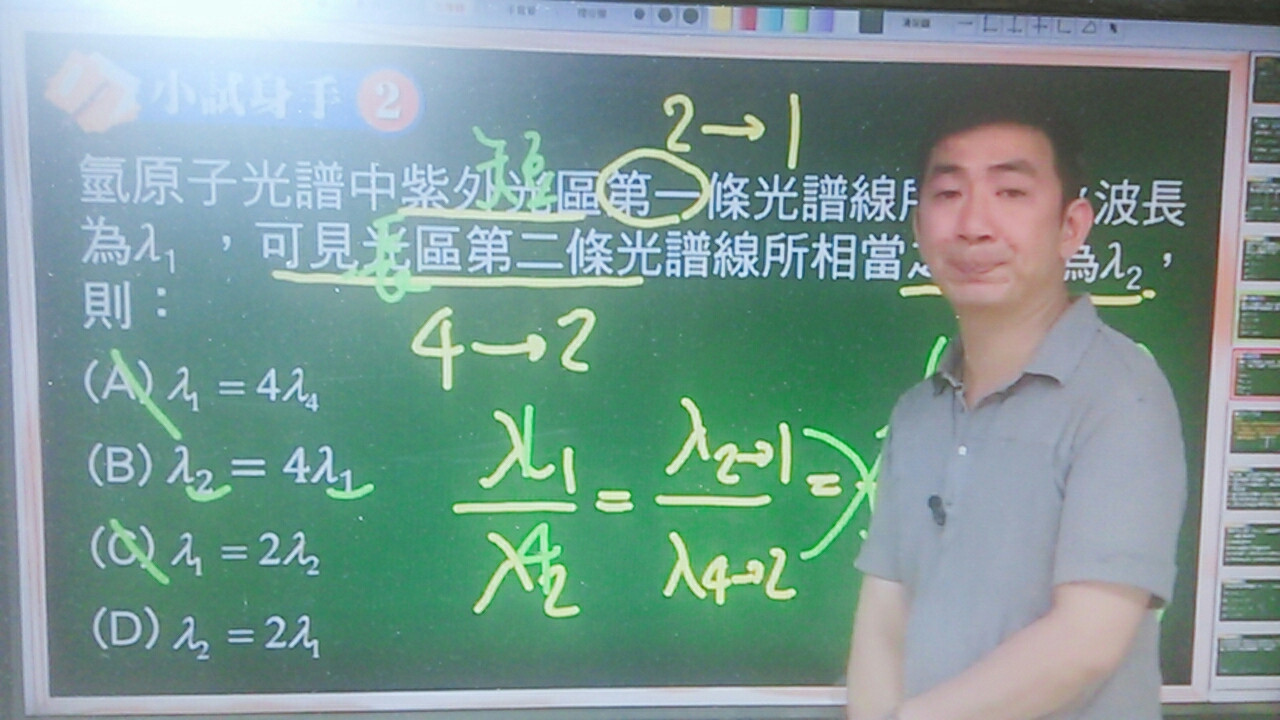 小試身手 2
2→1
短
氫原子光譜中紫外光區第一條光譜線所 波長
為λ1，可見光區第二條光譜線所相當之 為λ2，
長
則：
4→2
(A) λ1 = 4λ4
(B) λ2 = 4λ1
(C) λ1 = 2λ2
(D) λ2 = 2λ1
λ1/λ2 = λ2→1/λ4→2 =